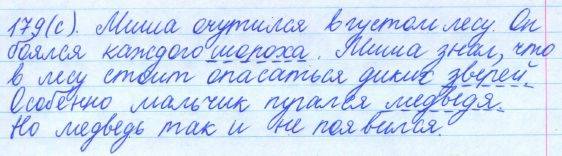 179(с). Миша очутился в густом лесу. Он
боялся каждого шороха. Миша знал, что
в лесу стоит опасаться диких зверей.
Особенно мальчик пугался медведя.
Но медведь так и не появился.